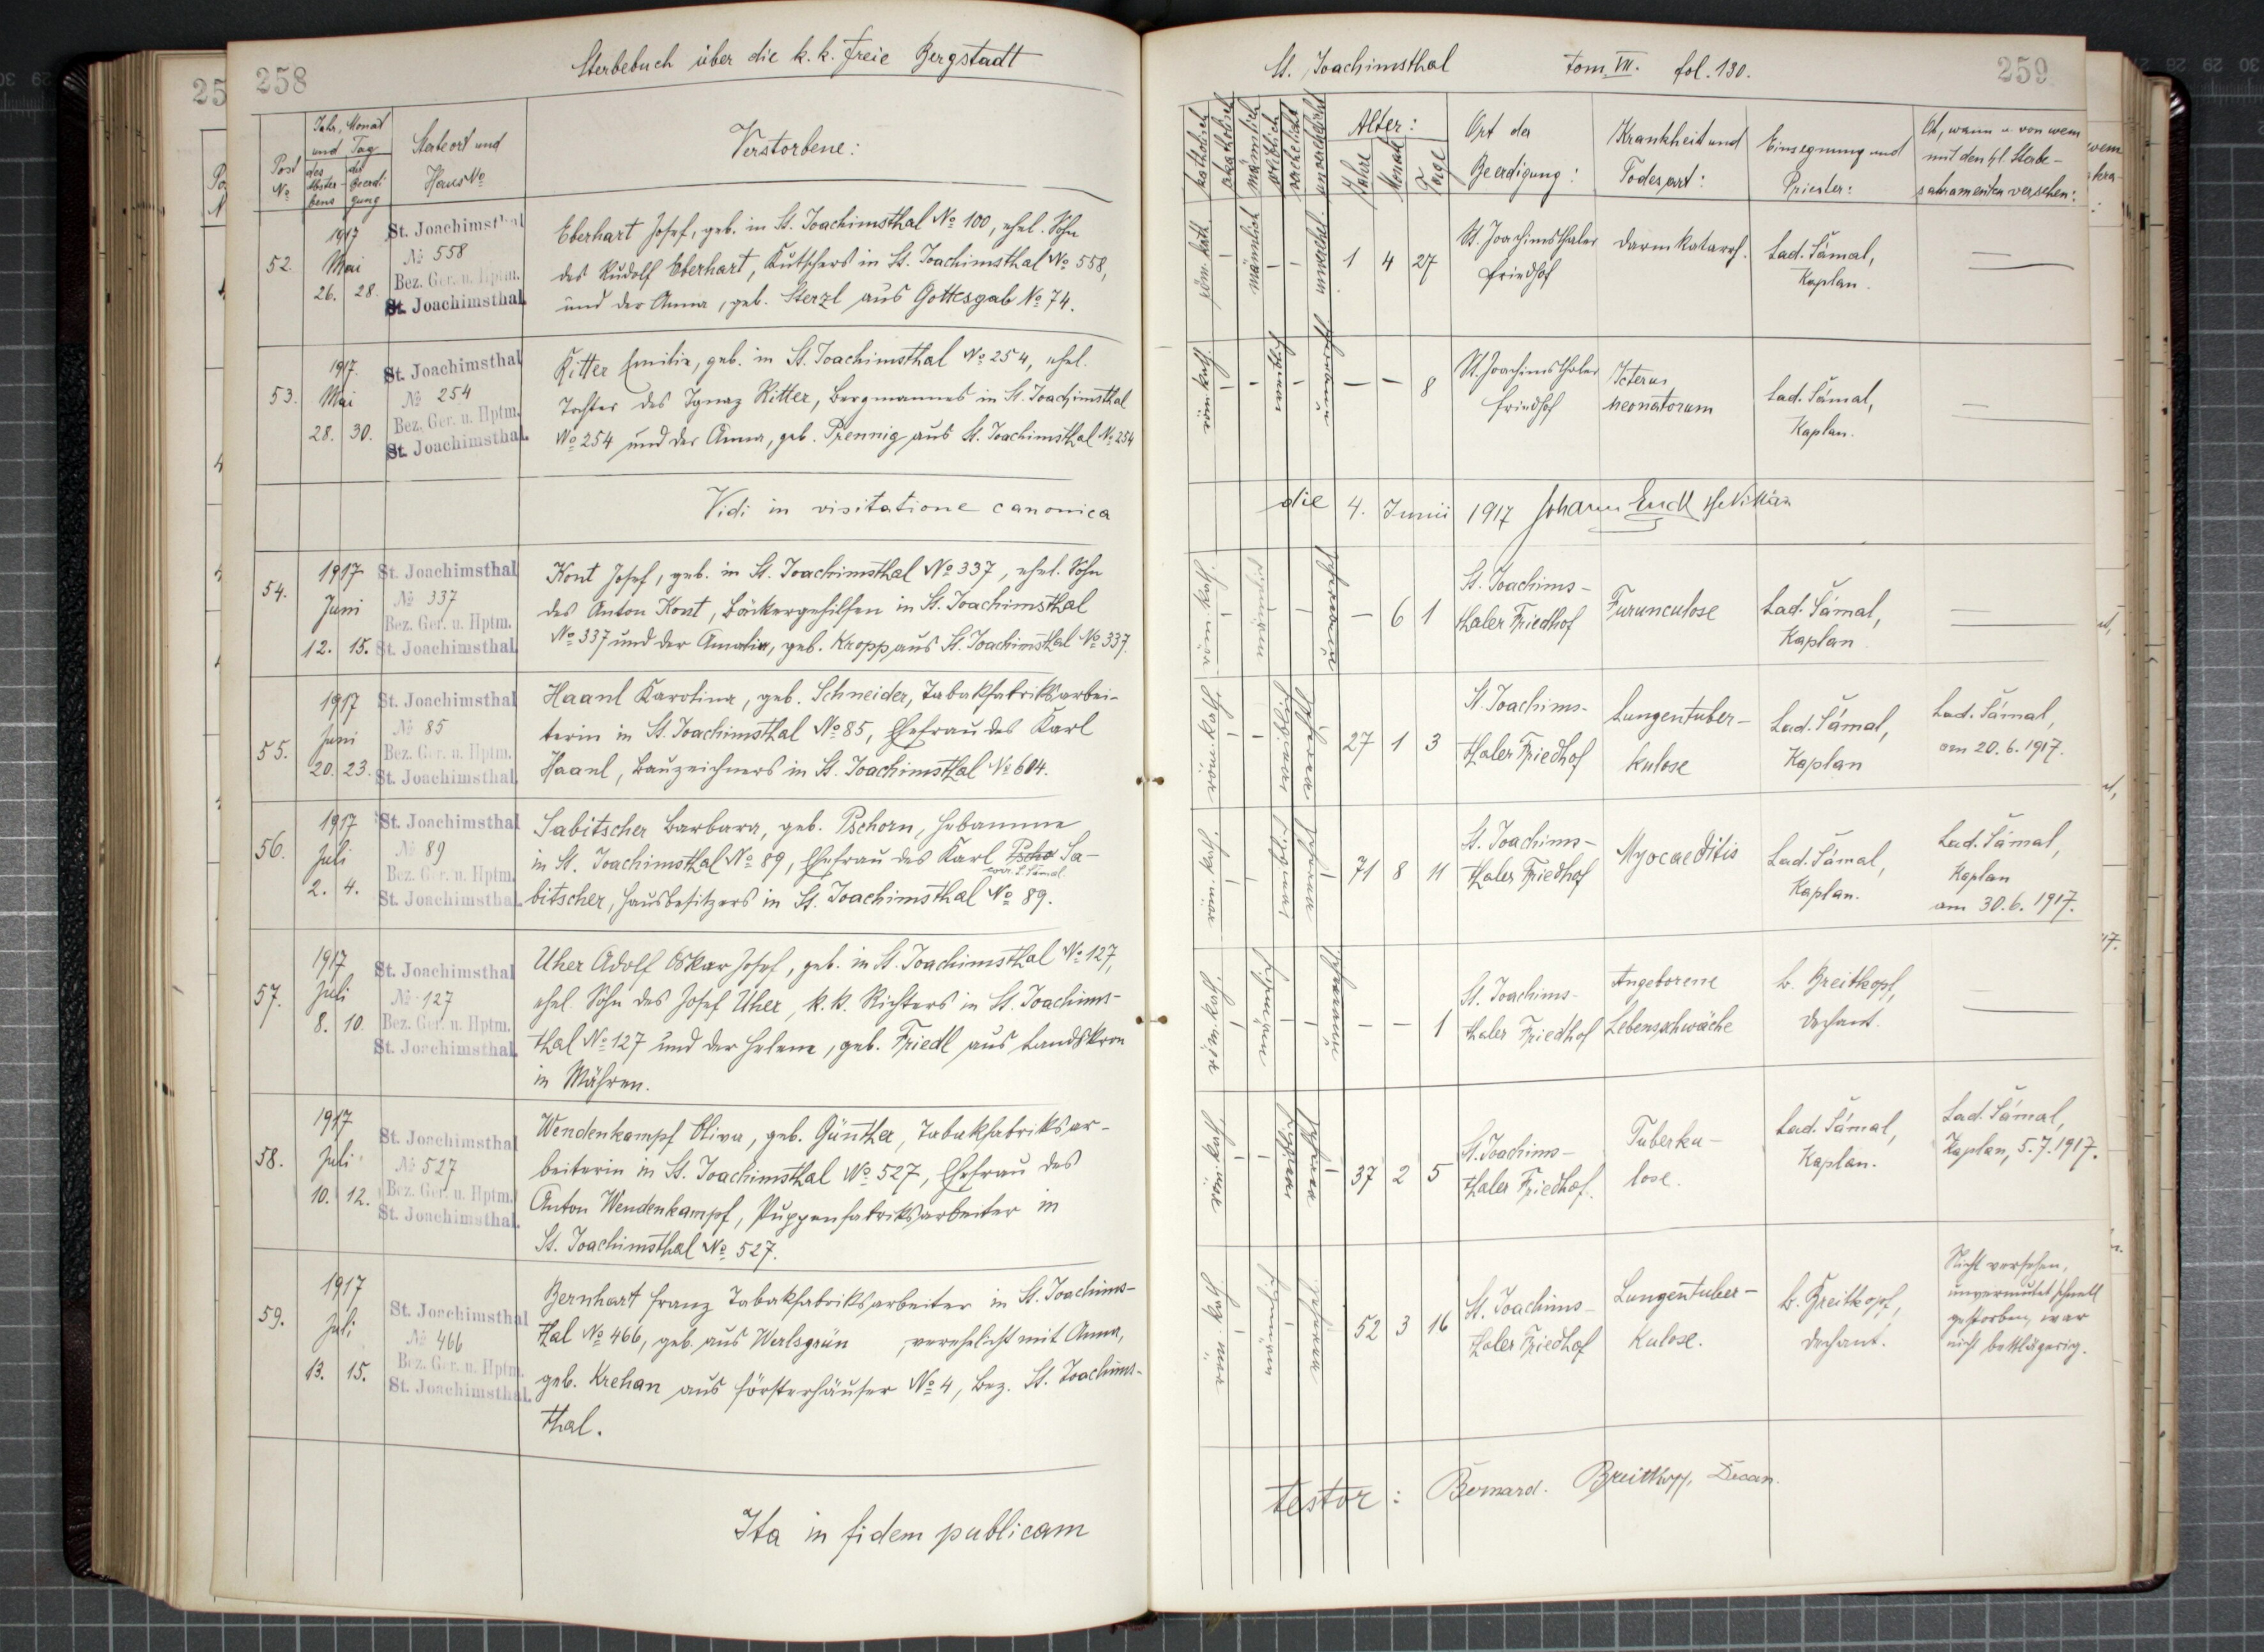 258
Sterbebuch über die k. k. freie Bergstadt
Post No
Jahr, Monat und Tag
des Abster-bens
der Beerdi-gung
Sterbeort und Haus No
Verstorbene:
52.
1917 Mai
26. 28.
St. Joachimsthal
No 558
Bez. Ger. u. Hptm.
St. Joachimsthal.
Eberhart Josef, geb. in St. Joachimsthal No 100, ehel. Sohn
des Rudolf Eberhart, Kutschers in St. Joachimsthal No 558,
und der Anna, geb. Sterzl aus Gottesgab No 74.
53.
1917. Mai
28. 30.
St. Joachimsthal
No 254
Bez. Ger. u. Hptm.
St. Joachimsthal.
Ritter Emilie, geb. in St. Joachimsthal No 254, ehel.
Tochter des Ignaz Ritter, Bergmannes in St. Joachimsthal
No 254 und der Anna, geb. Prennig aus St. Joachimsthal No 254
Vidi in visitatione canonica
54.
1917 Juni
12. 15.
St. Joachimsthal
No 337
Bez. Ger. u. Hptm.
St. Joachimsthal.
Kont Josef, geb. in St. Joachimsthal No 337, ehel. Sohn
des Anton Kont, Bäckergehilfen in St. Joachimsthal
No 337 und der Amalia, geb. Kropp aus St. Joachimsthal No 337.
55.
1917 Juni
20. 23.
St. Joachimsthal
No 85
Bez. Ger. u. Hptm.
St. Joachimsthal.
Haanl Karolina, geb. Schneider, Tabakfabriksarbei-
terin in St. Joachimsthal No 85, Ehefrau des Karl
Haanl, Bauzeichners in St. Joachimsthal No 604.
56.
1917 Juli
2. 4.
St. Joachimsthal
No 89
Bez. Ger. u. Hptm.
St. Joachimsthal.
Sabitscher Barbara, geb. Pschorn, Hebamme
in St. Joachimsthal No 89, Ehefrau des Karl Pscho Sa-
corr. L. Šámal
bitscher, Hausbesitzers in St. Joachimsthal No 89.
57.
1917 Juli
8. 10.
St. Joachimsthal
No 127
Bez. Ger. u. Hptm.
St. Joachimsthal.
Uher Adolf Oskar Josef, geb. in St. Joachimsthal No 127,
ehel. Sohn des Josef Uher, k. k. Richters in St. Joachims-
thal No 127 und der Helene, geb. Friedl aus Landskron
in Mähren.
58.
1917 Juli
10. 12.
St. Joachimsthal
No 527
Bez. Ger. u. Hptm.
St. Joachimsthal.
Wendenkampf Oliva, geb. Günther, Tabakfabriksar-
beiterin in St. Joachimsthal No 527, Ehefrau des
Anton Wendenkampf, Puppenfabriksarbeiter in
St. Joachimsthal No 527.
59.
1917 Juli
13. 15.
St. Joachimsthal
No 466
Bez. Ger. u. Hptm.
St. Joachimsthal.
Bernhart Franz Tabakfabriksarbeiter in St. Joachims-
thal No 466, geb. aus Werlsgrün, verehelicht mit Anna,
geb. Krehan aus Försterhäuser No 4, Bez. St. Joachims-
thal.
Ita in fidem publicam
St. Joachimsthal tom. VII. fol. 130.
259
katholisch
akatholisch
männlich
weiblich
verehelicht
unverehelicht
Alter:
Jahre
Monate
Tage
Ort der Beerdigung:
Krankheit und Todesart:
Einsegnung und Priester:
Ob, wann u. von wem
mit den hl. Sterbe-
sakramenten versehen:
röm. kath. - männlich - - unverehel. 1 4 27
St. Joachimsthaler Friedhof
Darmkatarrh.
Lad. Šámal, Kaplan.
röm. kath. - - weiblich - unverehel. — — 8
St. Joachimsthaler Friedhof
Icterus neonatorum
Lad. Šámal, Kaplan.
die 4. Junii 1917 Johann Endl
röm. kath. - männlich - - unverehel. — 6 1
St. Joachims-thaler Friedhof
Furunculose
Lad. Šámal, Kaplan
röm. kath. - - weiblich verehel. - 27 1 3
St. Joachims-thaler Friedhof
Lungentuber-kulose
Lad. Šámal, Kaplan
Lad. Šámal, am 20. 6. 1917.
röm. kath. - - weiblich verehel. - 71 8 11
St. Joachims-thaler Friedhof
Myocaeditis
Lad. Šámal, Kaplan.
Lad. Šámal, Kaplan am 30. 6. 1917.
röm. kath. - männlich - - unverehel. — — 1
St. Joachims-thaler Friedhof
Angeborene Lebensschwäche
B. Breitkopf, Dechant.
röm. kath. - - weiblich verehel. - 37 2 5
St. Joachims-thaler Friedhof.
Tuberku-lose.
Lad. Šámal, Kaplan.
Lad. Šámal, Kaplan, 5. 7. 1917.
röm. kath. - männlich - verehel. 52 3 16
St. Joachims-thaler Friedhof
Lungentuber-kulose.
B. Breitkopf, Dechant.
Nicht versehen,
unvermutet schnell
gestorben, war
nicht bettlägerig.
testor: Bernard. Breitkopf, Decan.